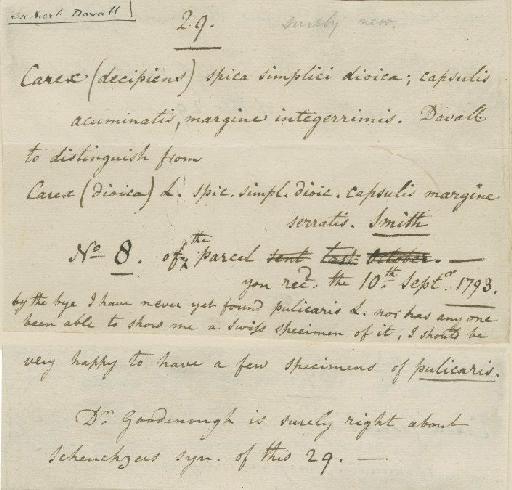 Davall
29.
surely new.
Carex (decipiens) spica simplici dioica; capsulis
acuminatis, margine integerrimis. Davall
to distinguish from
Carex (dioica) L. spic. simpl. dioic. capsulis margine
serratis. Smith
No 8. of the parcel sent last October. —
you recd. the 10th. Septr. 1793.
by the bye I have never yet found pulicaris L. nor has any one
been able to show me a Swiss specimen of it, I should be
very happy to have a few specimens of pulicaris.
Dr. Goodenough is surely right about
Scheuchzers syn. of this 29. —